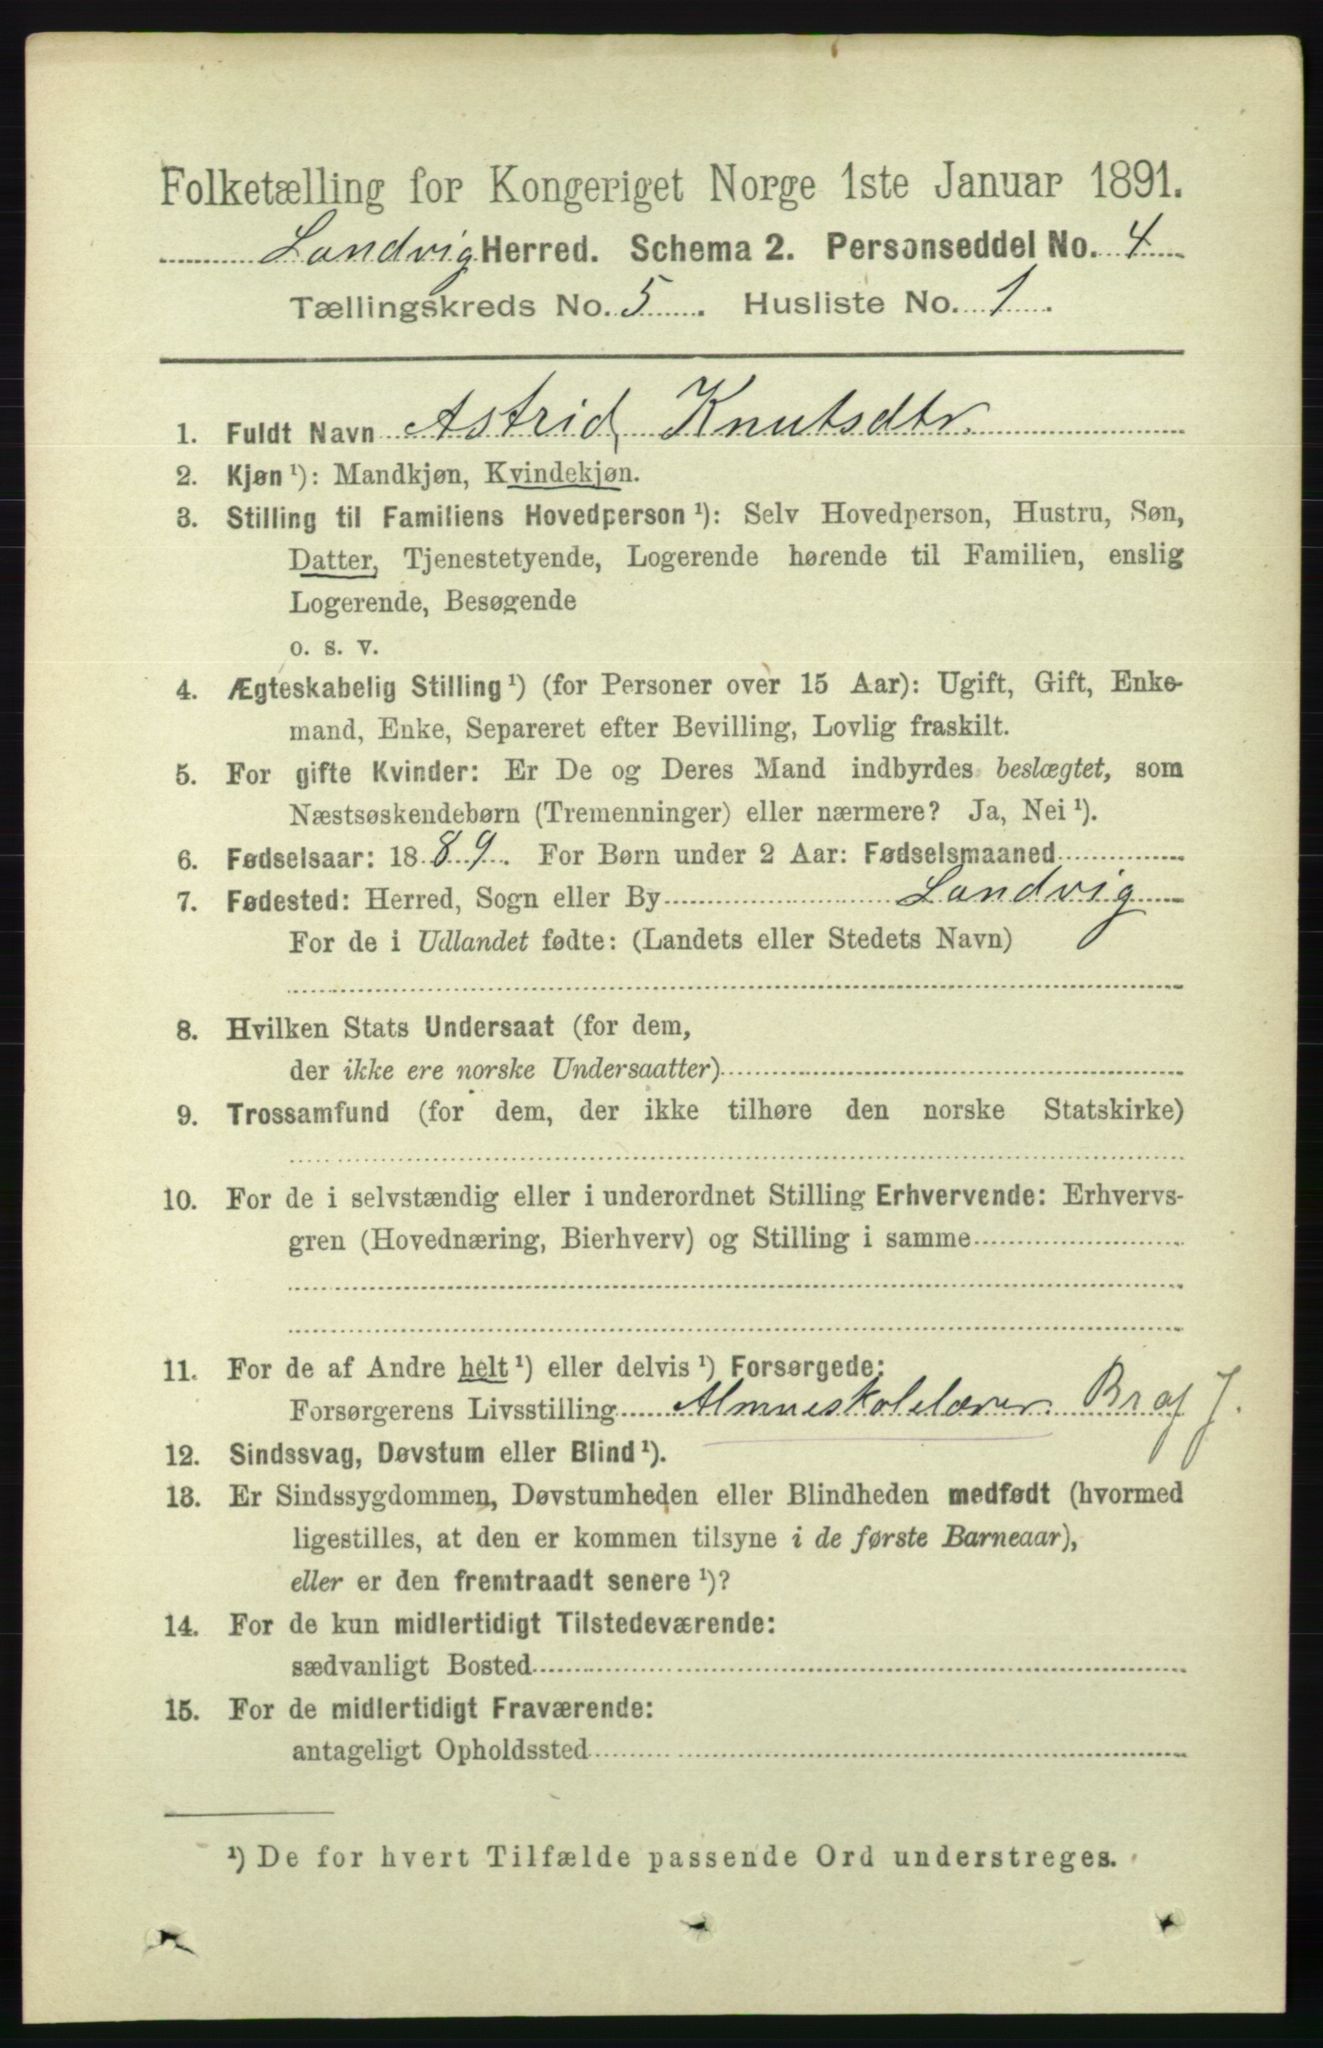 Folketælling for Kongeriget Norge 1ste Januar 1891.
Landvig Herred. Schema 2. Personseddel No. 4
Tællingskreds No. 5. Husliste No. 1.
1. Fuldt Navn Astrid Knutsdtr.
2. Kjøn ¹): Mandkjøn, Kvindekjøn.
3. Stilling til Familiens Hovedperson ¹): Selv Hovedperson, Hustru, Søn,
Datter, Tjenestetyende, Logerende hørende til Familien, enslig
Logerende, Besøgende
o. s. v.
4. Ægteskabelig Stilling ¹) (for Personer over 15 Aar): Ugift, Gift, Enke-
mand, Enke, Separeret efter Bevilling, Lovlig fraskilt.
5. For gifte Kvinder: Er De og Deres Mand indbyrdes beslægtet, som
Næstsøskendebørn (Tremenninger) eller nærmere? Ja, Nei ¹).
6. Fødselsaar: 1889. For Børn under 2 Aar: Fødselsmaaned
7. Fødested: Herred, Sogn eller By Landvig
For de i Udlandet fødte: (Landets eller Stedets Navn)
8. Hvilken Stats Undersaat (for dem,
der ikke ere norske Undersaatter)
9. Trossamfund (for dem, der ikke tilhøre den norske Statskirke)
10. For de i selvstændig eller i underordnet Stilling Erhvervende: Erhvervs-
gren (Hovednæring, Bierhverv) og Stilling i samme
11. For de af Andre helt ¹) eller delvis ¹) Forsørgede:
Forsørgerens Livsstilling Almueskolelærer. Br af J.
12. Sindssvag, Døvstum eller Blind ¹).
13. Er Sindssygdommen, Døvstumheden eller Blindheden medfødt (hvormed
ligestilles, at den er kommen tilsyne i de første Barneaar),
eller er den fremtraadt senere ¹)?
14. For de kun midlertidigt Tilstedeværende:
sædvanligt Bosted
15. For de midlertidigt Fraværende:
antageligt Opholdssted
¹) De for hvert Tilfælde passende Ord understreges.